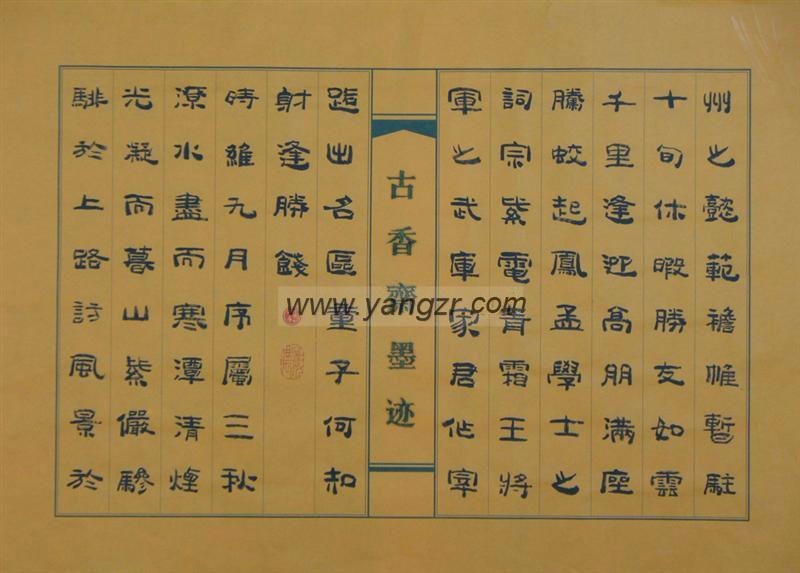 州之懿範襜帷暫駐
十旬休暇勝友如雲
千里逢迎高朋滿座
騰蛟起鳳孟學士之
詞宗紫電青霜王將
軍之武庫家君作宰
古香齋墨迹
路出名區童子何知
躬逢勝餞
時維九月序屬三秋
潦水盡而寒潭清煙
光凝而暮山紫儼驂
騑於上路訪風景於
www.yangzr.com